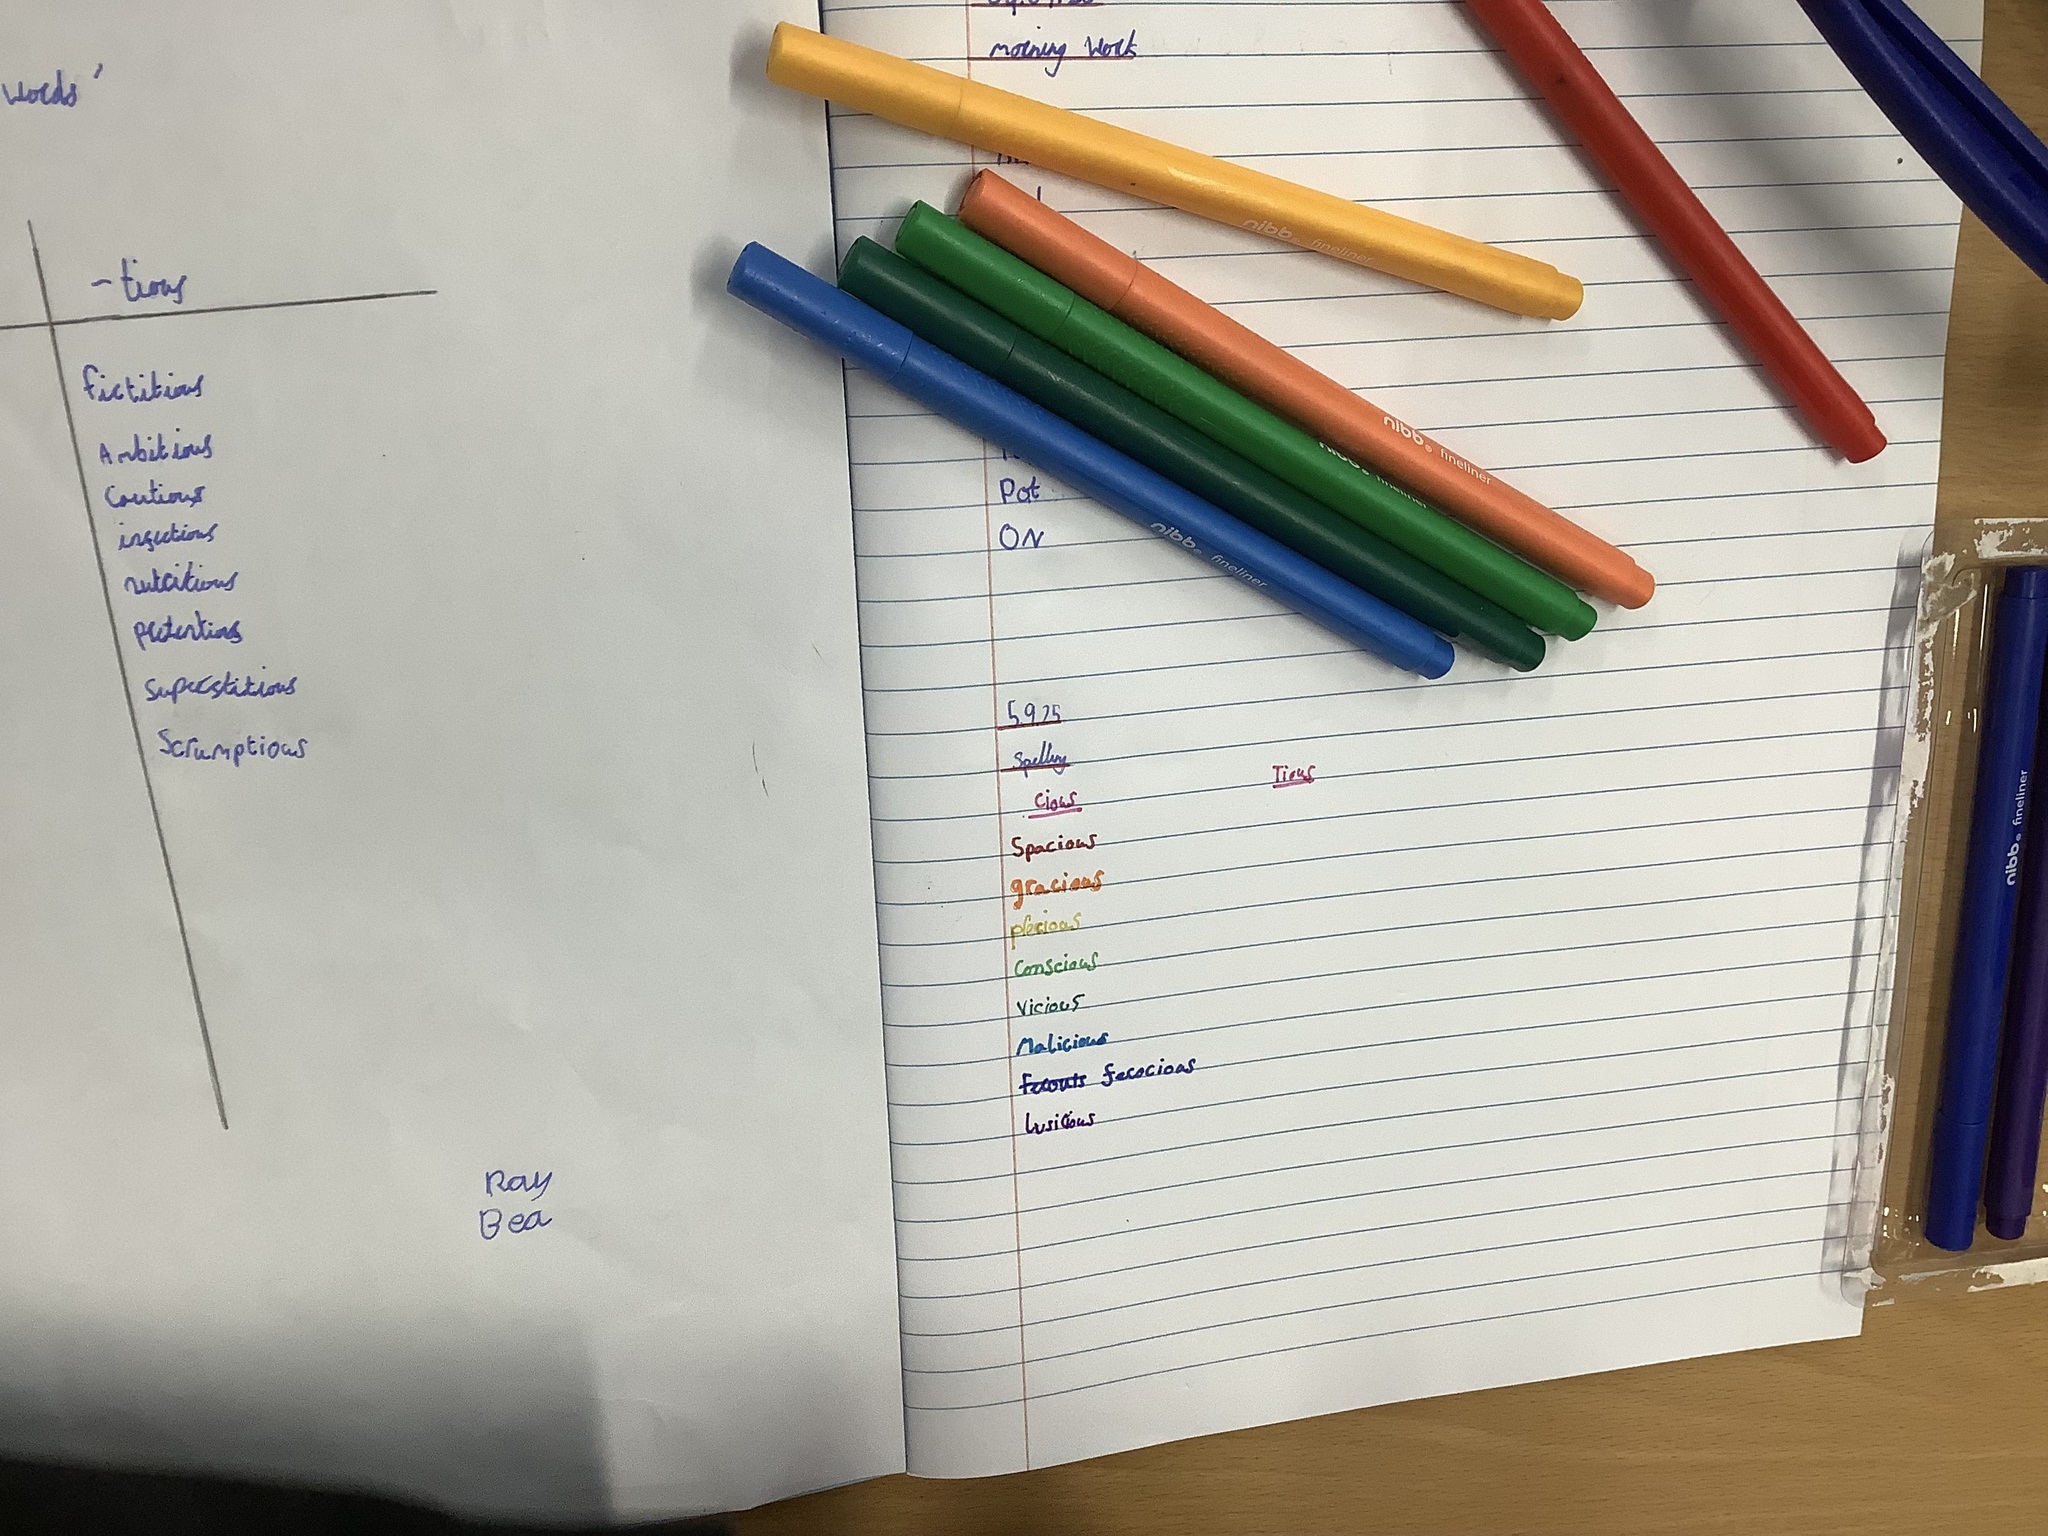 words'
-tious
fictitious
Ambitious
Cautious
infectious
nutritious
pretentious
Superstitious
Scrumptious
Ray
Bea
morning Work
Pot
ON
5.9.25
Spelling
cious
Tious
Spacious
gracious
precious
Conscious
Vicious
Malicious
ferocious
lusicous
nibb fineliner
nibb fineliner
nibb fineliner
nibb fineliner
nibb fineliner